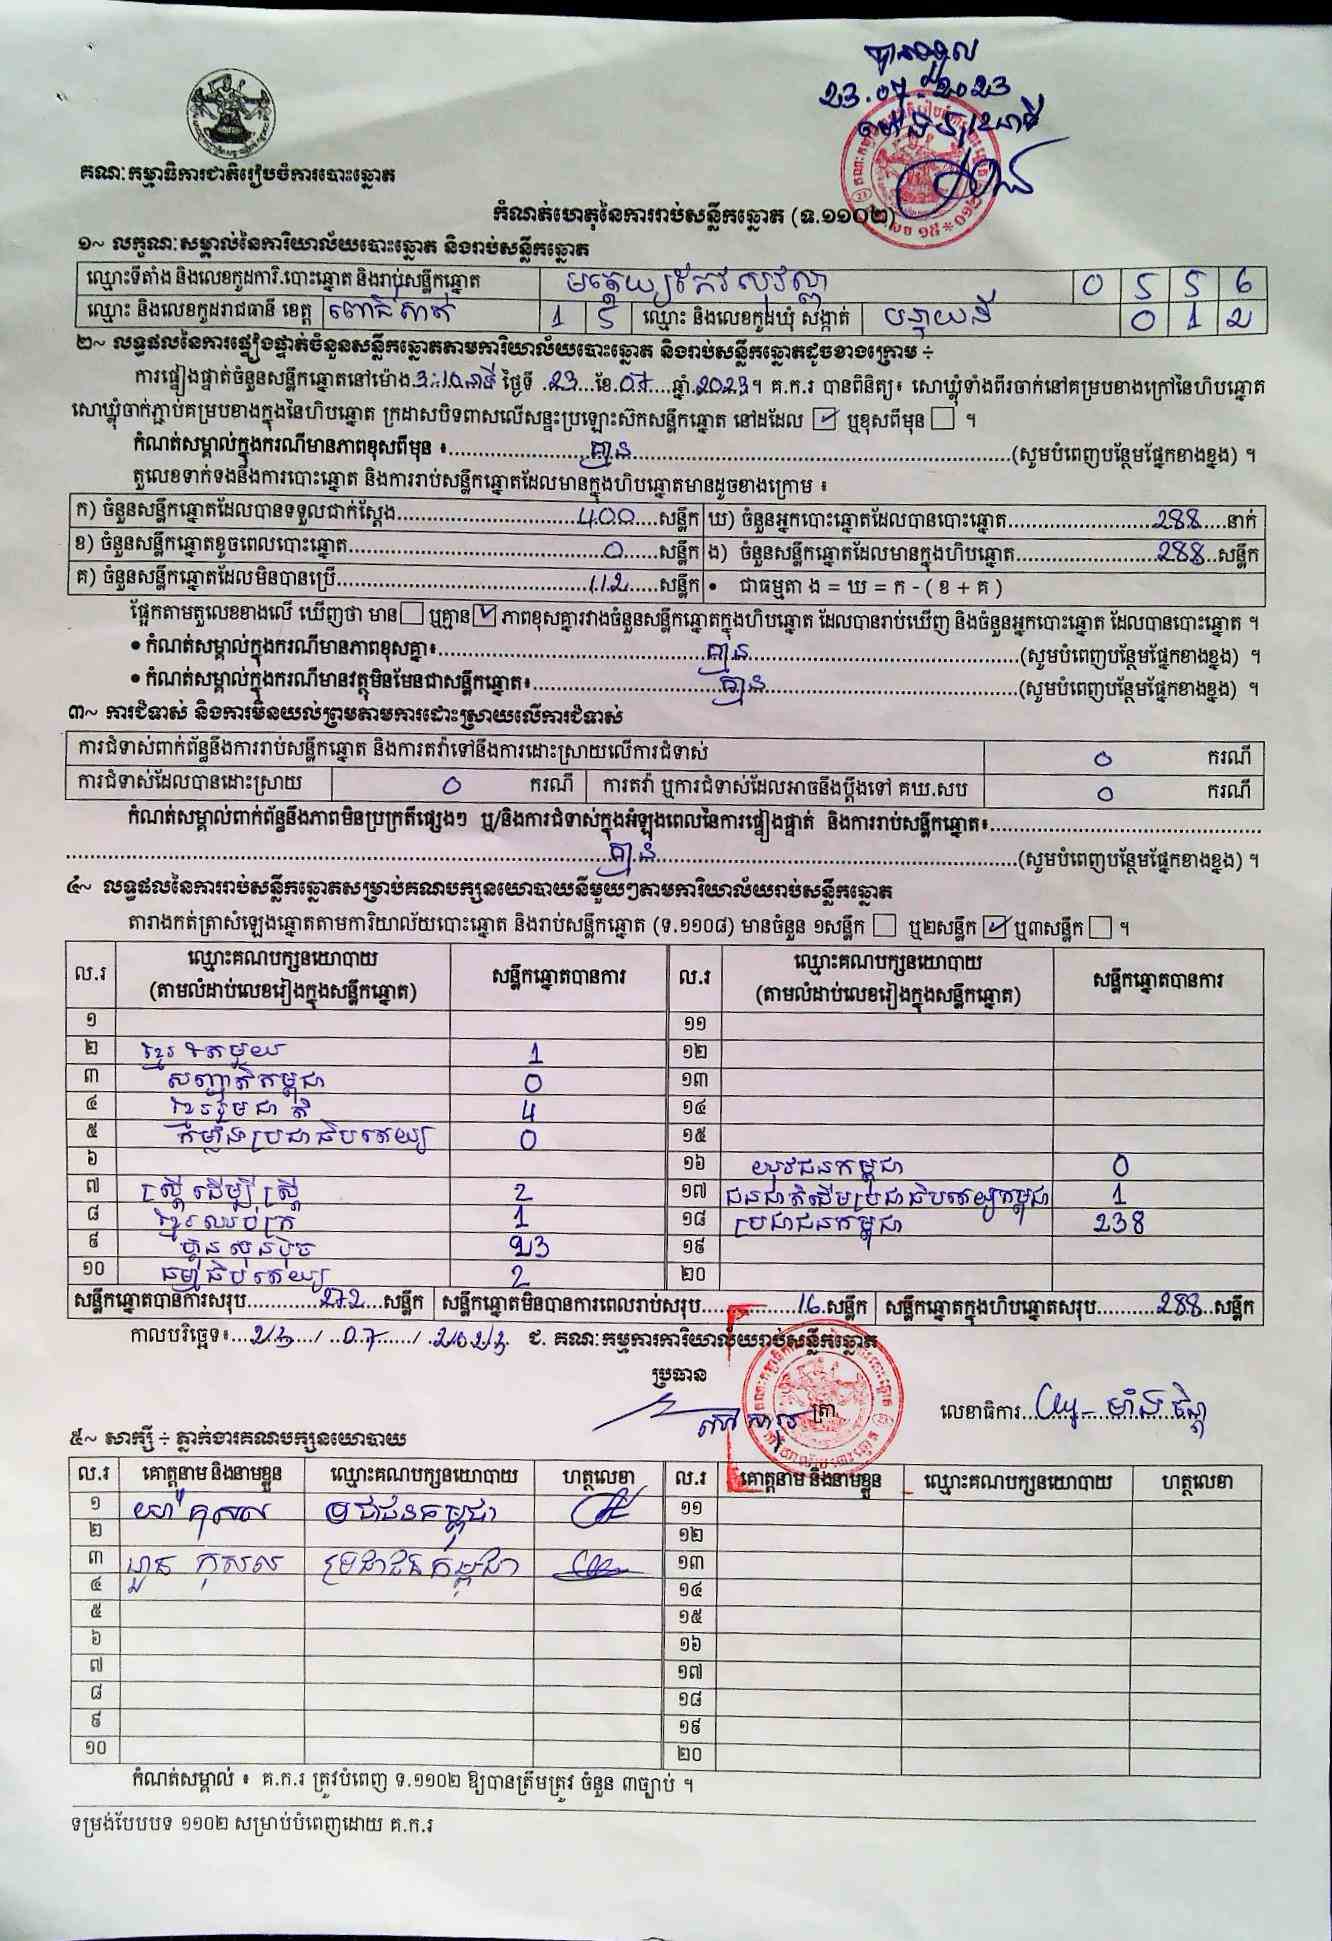 បានទទួល
23.07.2023
គណៈកម្មាធិការជាតិរៀបចំការបោះឆ្នោត
កំណត់ហេតុនៃការរាប់សន្លឹកឆ្នោត (ទ.១១០២)
១~ លក្ខណៈសម្គាល់នៃការិយាល័យបោះឆ្នោត និងរាប់សន្លឹកឆ្នោត
ឈ្មោះទីតាំង និងលេខកូដការិ.បោះឆ្នោត និងរាប់សន្លឹកឆ្នោត 0 5 5 6
ឈ្មោះ និងលេខកូដរាជធានី ខេត្ត ពោធិ៍សាត់ 1 5 ឈ្មោះ និងលេខកូដឃុំ សង្កាត់ 0 1 2
២~ លទ្ធផលនៃការផ្ទៀងផ្ទាត់ចំនួនសន្លឹកឆ្នោតតាមការិយាល័យបោះឆ្នោត និងរាប់សន្លឹកឆ្នោតដូចខាងក្រោម ÷
ការផ្ទៀងផ្ទាត់ចំនួនសន្លឹកឆ្នោតនៅម៉ោង 3:10នាទី ថ្ងៃទី 23 ខែ 07 ឆ្នាំ 2023។ គ.ក.រ បានពិនិត្យ៖ សោឃ្លុំទាំងពីរចាក់នៅគម្របខាងក្រៅនៃហិបឆ្នោត
សោឃ្លុំចាក់ភ្ជាប់គម្របខាងក្នុងនៃហិបឆ្នោត ក្រដាសបិទពាសលើសន្ទះប្រឡោះស៊កសន្លឹកឆ្នោត នៅដដែល ☑ ឬខុសពីមុន ☐ ។
កំណត់សម្គាល់ក្នុងករណីមានភាពខុសពីមុន ៖ គ្មាន (សូមបំពេញបន្ថែមផ្នែកខាងខ្នង) ។
តួលេខទាក់ទងនឹងការបោះឆ្នោត និងការរាប់សន្លឹកឆ្នោតដែលមានក្នុងហិបឆ្នោតមានដូចខាងក្រោម ៖
ក) ចំនួនសន្លឹកឆ្នោតដែលបានទទួលជាក់ស្តែង 400 សន្លឹក ឃ) ចំនួនអ្នកបោះឆ្នោតដែលបានបោះឆ្នោត 288 នាក់
ខ) ចំនួនសន្លឹកឆ្នោតខូចពេលបោះឆ្នោត 0 សន្លឹក ង) ចំនួនសន្លឹកឆ្នោតដែលមានក្នុងហិបឆ្នោត 288 សន្លឹក
គ) ចំនួនសន្លឹកឆ្នោតដែលមិនបានប្រើ 112 សន្លឹក • ជាធម្មតា ង = ឃ = ក - ( ខ + គ )
ផ្អែកតាមតួលេខខាងលើ ឃើញថា មាន ☐ ឬគ្មាន ☑ ភាពខុសគ្នារវាងចំនួនសន្លឹកឆ្នោតក្នុងហិបឆ្នោត ដែលបានរាប់ឃើញ និងចំនួនអ្នកបោះឆ្នោត ដែលបានបោះឆ្នោត ។
• កំណត់សម្គាល់ក្នុងករណីមានភាពខុសគ្នា៖ គ្មាន (សូមបំពេញបន្ថែមផ្នែកខាងខ្នង) ។
• កំណត់សម្គាល់ក្នុងករណីមានវត្ថុមិនមែនជាសន្លឹកឆ្នោត៖ គ្មាន (សូមបំពេញបន្ថែមផ្នែកខាងខ្នង) ។
៣~ ការជំទាស់ និងការមិនយល់ព្រមតាមការដោះស្រាយលើការជំទាស់
ការជំទាស់ពាក់ព័ន្ធនឹងការរាប់សន្លឹកឆ្នោត និងការតវ៉ាទៅនឹងការដោះស្រាយលើការជំទាស់ 0 ករណី
ការជំទាស់ដែលបានដោះស្រាយ 0 ករណី ការតវ៉ា ឬការជំទាស់ដែលអាចនឹងប្តឹងទៅ គឃ.សប 0 ករណី
កំណត់សម្គាល់ពាក់ព័ន្ធនឹងភាពមិនប្រក្រតីផ្សេងៗ ឬ/និងការជំទាស់ក្នុងអំឡុងពេលនៃការផ្ទៀងផ្ទាត់ និងការរាប់សន្លឹកឆ្នោត៖
គ្មាន (សូមបំពេញបន្ថែមផ្នែកខាងខ្នង) ។
៤~ លទ្ធផលនៃការរាប់សន្លឹកឆ្នោតសម្រាប់គណបក្សនយោបាយនីមួយៗតាមការិយាល័យរាប់សន្លឹកឆ្នោត
តារាងកត់ត្រាសំឡេងឆ្នោតតាមការិយាល័យបោះឆ្នោត និងរាប់សន្លឹកឆ្នោត (ទ.១១០៨) មានចំនួន ១សន្លឹក ☐ ឬ២សន្លឹក ☑ ឬ៣សន្លឹក ☐ ។
ល.រ ឈ្មោះគណបក្សនយោបាយ (តាមលំដាប់លេខរៀងក្នុងសន្លឹកឆ្នោត) សន្លឹកឆ្នោតបានការ ល.រ ឈ្មោះគណបក្សនយោបាយ (តាមលំដាប់លេខរៀងក្នុងសន្លឹកឆ្នោត) សន្លឹកឆ្នោតបានការ
១ ១១
២ ខ្មែរតែមួយ 1 ១២
៣ សញ្ជាតិកម្ពុជា 0 ១៣
៤ ខ្មែររួមជាតិ 4 ១៤
៥ កម្លាំងប្រជាធិបតេយ្យ 0 ១៥
៦ ១៦ យុវជនកម្ពុជា 0
៧ ស្ត្រីដើម្បីស្ត្រី 2 ១៧ ជនជាតិដើមប្រជាធិបតេយ្យកម្ពុជា 1
៨ ខ្មែរឈប់ក្រ 1 ១៨ ប្រជាជនកម្ពុជា 238
៩ ហ្វ៊ុនស៊ិនប៉ិច 23 ១៩
១០ ធម្មាធិបតេយ្យ 2 ២០
សន្លឹកឆ្នោតបានការសរុប 272 សន្លឹក សន្លឹកឆ្នោតមិនបានការពេលរាប់សរុប 16 សន្លឹក សន្លឹកឆ្នោតក្នុងហិបឆ្នោតសរុប 288 សន្លឹក
កាលបរិច្ឆេទ៖ 23 / 07 / 2023 ជ. គណៈកម្មការការិយាល័យរាប់សន្លឹកឆ្នោត
ប្រធាន
ត្រា
លេខាធិការ
៥~ សាក្សី ÷ ភ្នាក់ងារគណបក្សនយោបាយ
ល.រ គោត្តនាម និងនាមខ្លួន ឈ្មោះគណបក្សនយោបាយ ហត្ថលេខា ល.រ គោត្តនាម និងនាមខ្លួន ឈ្មោះគណបក្សនយោបាយ ហត្ថលេខា
១ ប្រជាជនកម្ពុជា ១១
២ ១២
៣ កុសល ប្រជាជនកម្ពុជា ១៣
៤ ១៤
៥ ១៥
៦ ១៦
៧ ១៧
៨ ១៨
៩ ១៩
១០ ២០
កំណត់សម្គាល់ ៖ គ.ក.រ ត្រូវបំពេញ ទ.១១០២ ឱ្យបានត្រឹមត្រូវ ចំនួន ៣ច្បាប់ ។
ទម្រង់បែបបទ ១១០២ សម្រាប់បំពេញដោយ គ.ក.រ